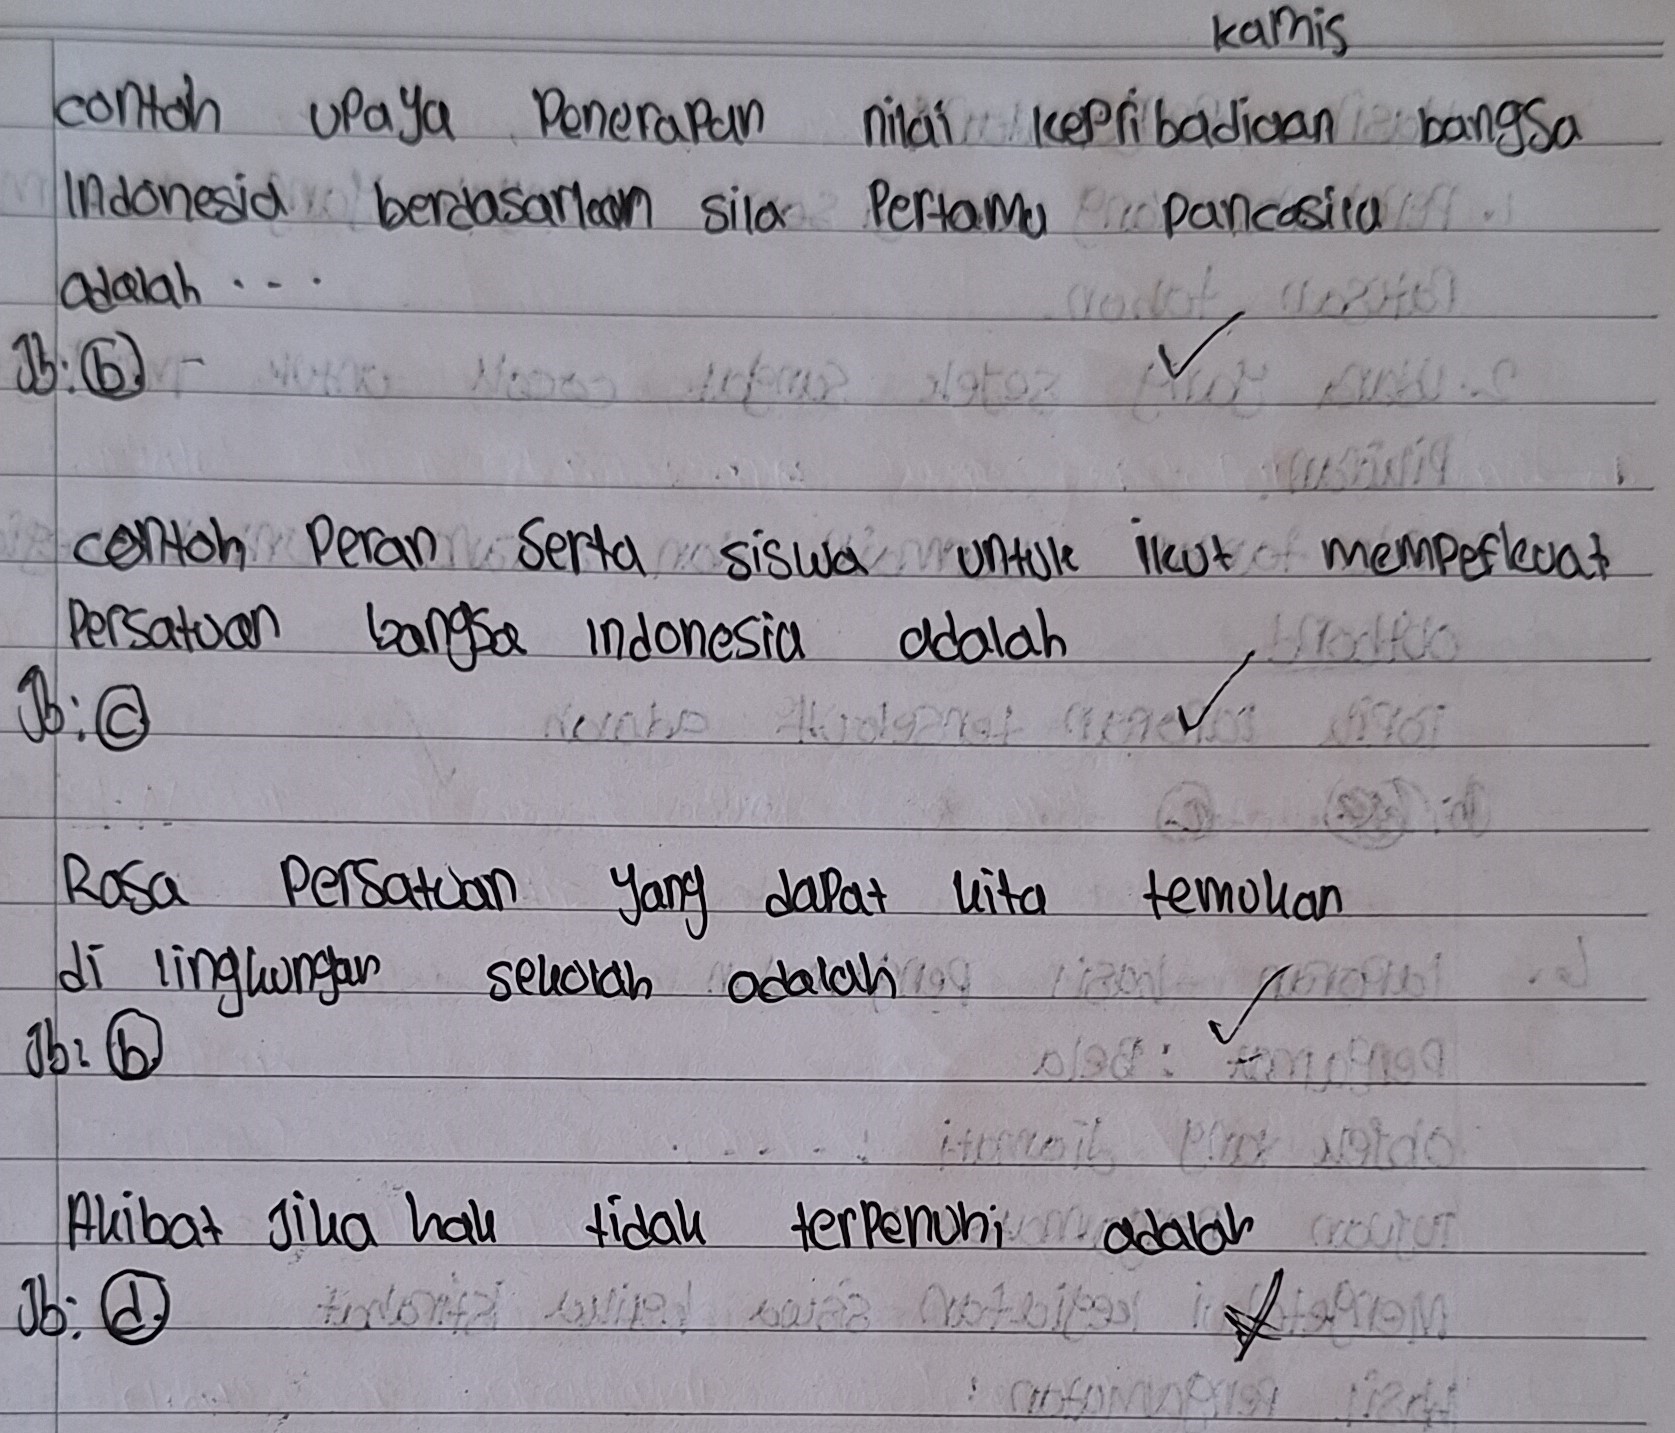 kamis
contoh upaya Penerapan nilai kepribadiaan bangsa
Indonesia berdasarkan sila Pertama pancasila
adalah ....
Jb: b) -
contoh Peran Serta siswa untuk ikut memperkuat
Persatuan bangsa indonesia adalah
Jb: c
Rasa Persatuan yang dapat kita temukan
di lingkungan sekolah adalah
Jb: b
Akibat Jika hak tidak terpenuhi adalah
Jb: d